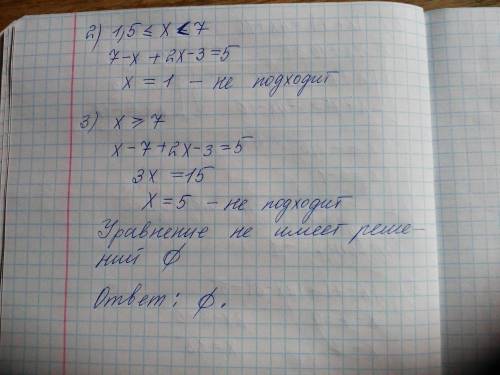 2) 1,5 ≤ x < 7
7-x + 2x-3=5
x = 1 - не подходит
3) x ⩾ 7
x-7+2x-3=5
3x = 15
x = 5 - не подходит
Уравнение не имеет реше-
ний ∅
Ответ: ∅.